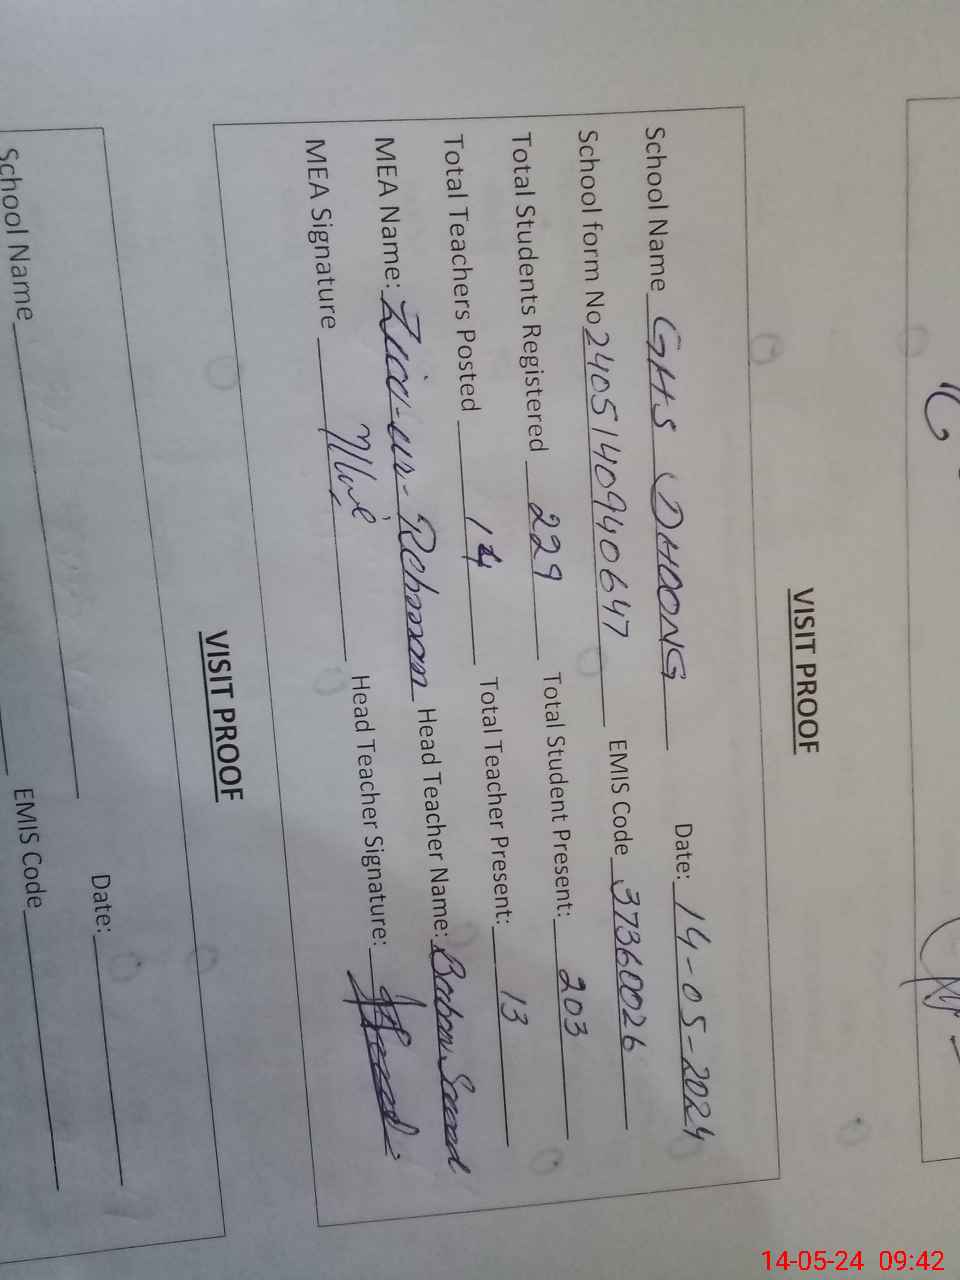 VISIT PROOF
School Name GHS DHOONG Date: 14-05-2024
School form No 2405140940647 EMIS Code 37360026
Total Students Registered 229 Total Student Present: 203
Total Teachers Posted 14 Total Teacher Present: 13
MEA Name: Zia-ur-Rehman Head Teacher Name: Babar Saeed
MEA Signature Head Teacher Signature:
VISIT PROOF
School Name Date:
EMIS Code
14-05-24 09:42